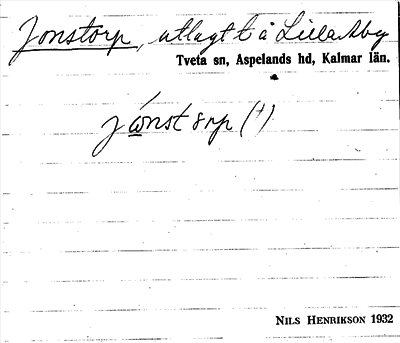 Jonstorp, utlagt t å Lilla Aby
Tveta sn, Aspelands hd, Kalmar län.
NILS HENRIKSON 1932